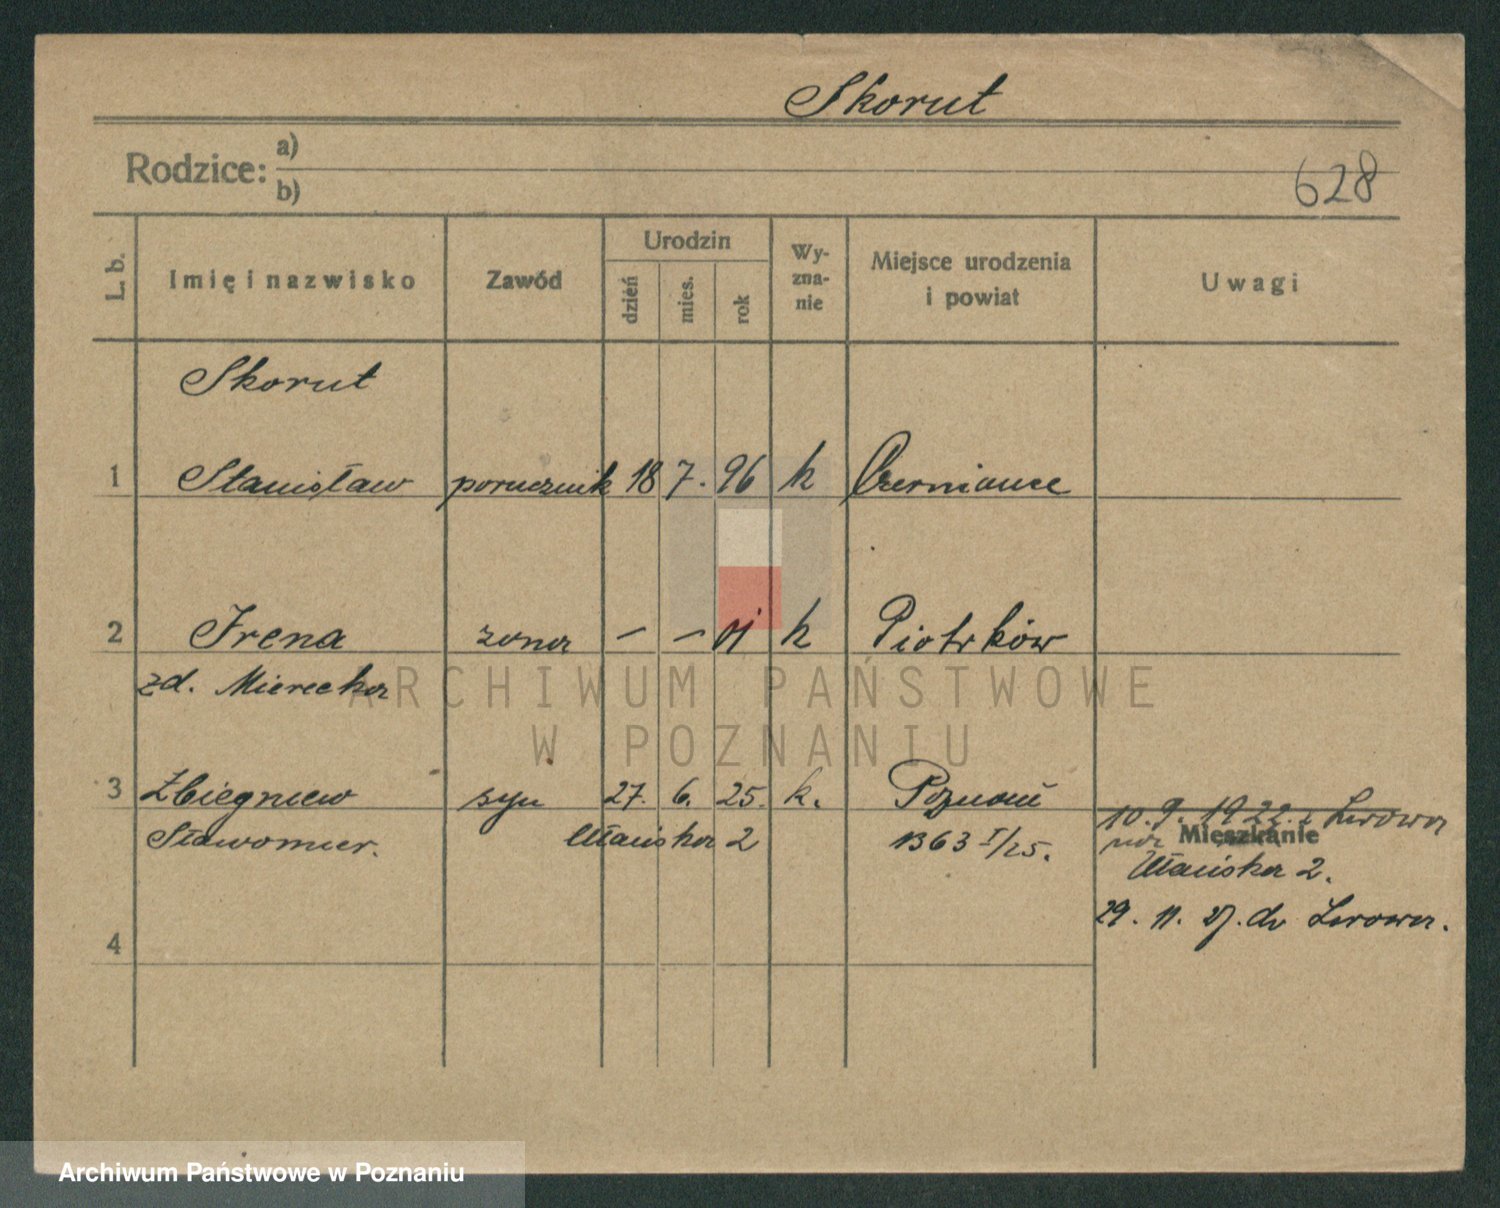 Skorut
Rodzice: a)
b)
628
L. b.
Imię i nazwisko
Zawód
Urodzin
dzień
mies.
rok
Wy-
zna-
nie
Miejsce urodzenia
i powiat
Uwagi
Skorut
1 Stanisław porucznik 18 7. 96 k
2 Irena żona — — 01 k Piotrków
zd. Mierecka
ARCHIWUM PAŃSTWOWE
W POZNANIU
3 Zbiegniew syn 27. 6. 25. k. Poznań
10.9. 1922. z Lwowa
Sławomier. Ułańska 2 1363 I/25.
Mieszkanie
Ułańska 2.
29. 11. 27. do Lwowa.
4
Archiwum Państwowe w Poznaniu